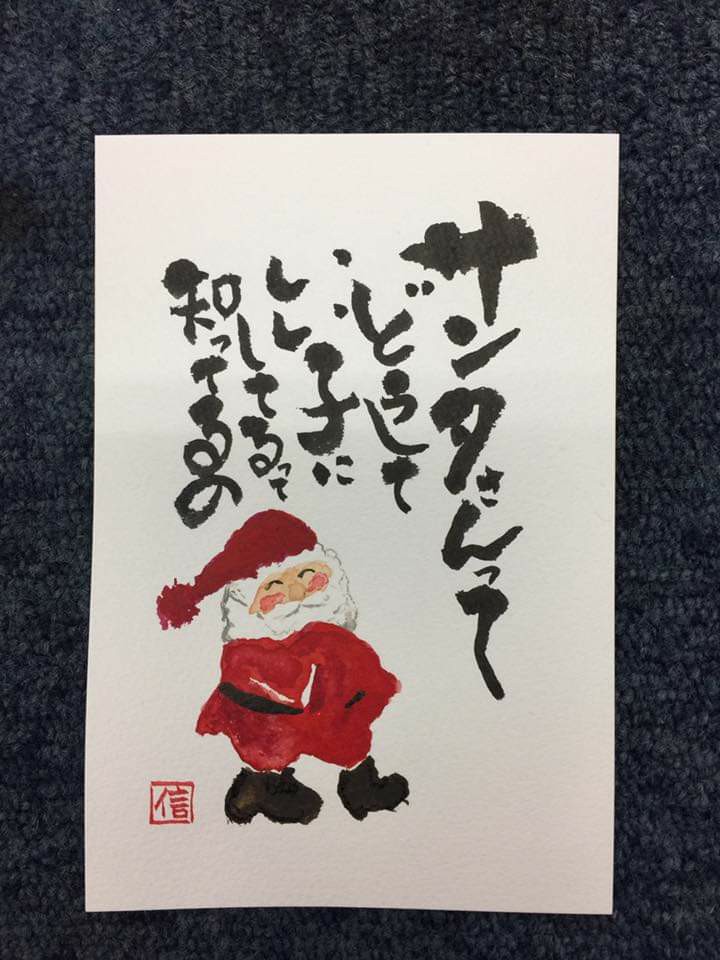 サンタさんって
どうして
いい子に
してるって
知ってるの
信